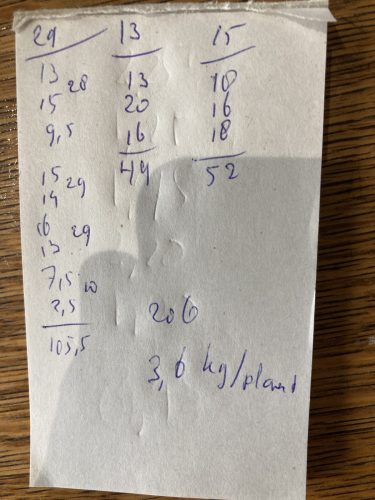 29
13
15 28
9,5
15 29
14
16
13 29
7,5
2,5 10
105,5
13
13
20
16
49
15
18
16
18
52
206
3,6 kg/plant